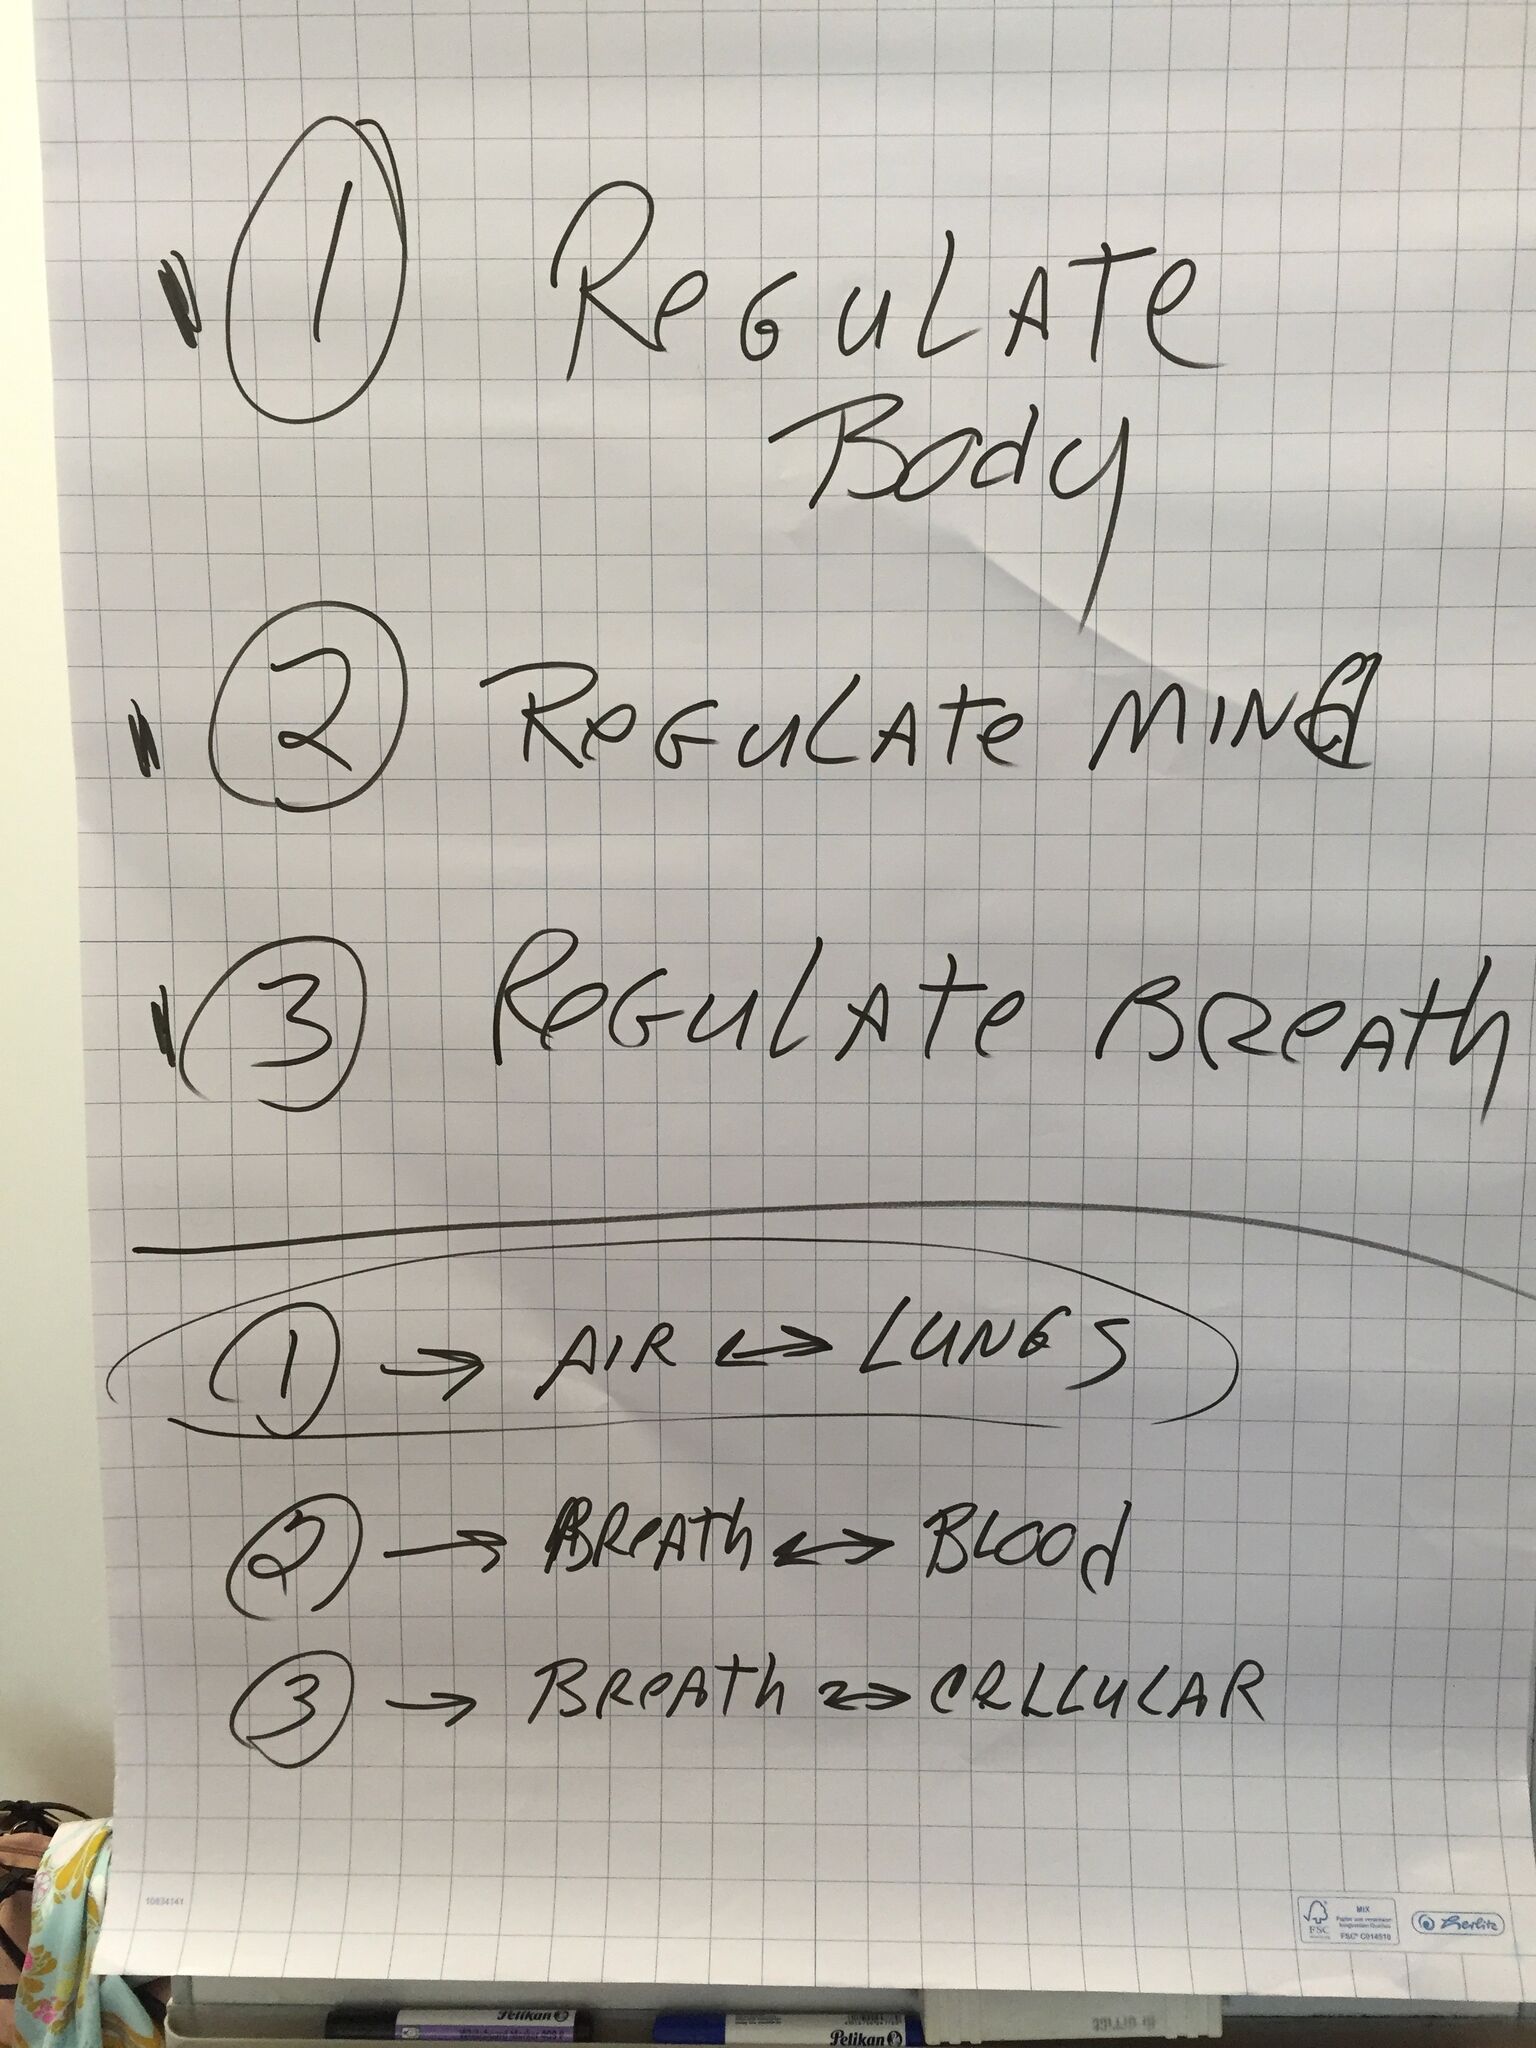 1 ReGULATe
Body
2 ReGULATe MINd
3 ReGULATe BReATh
1 → AIR ↔ LUNGS
2 → BReATh ↔ BLOOd
3 → BReATh ↔ CELLULAR
10634141
FSC
MIX
FSC® C014518
Herlitz
Pelikan
Pelikan